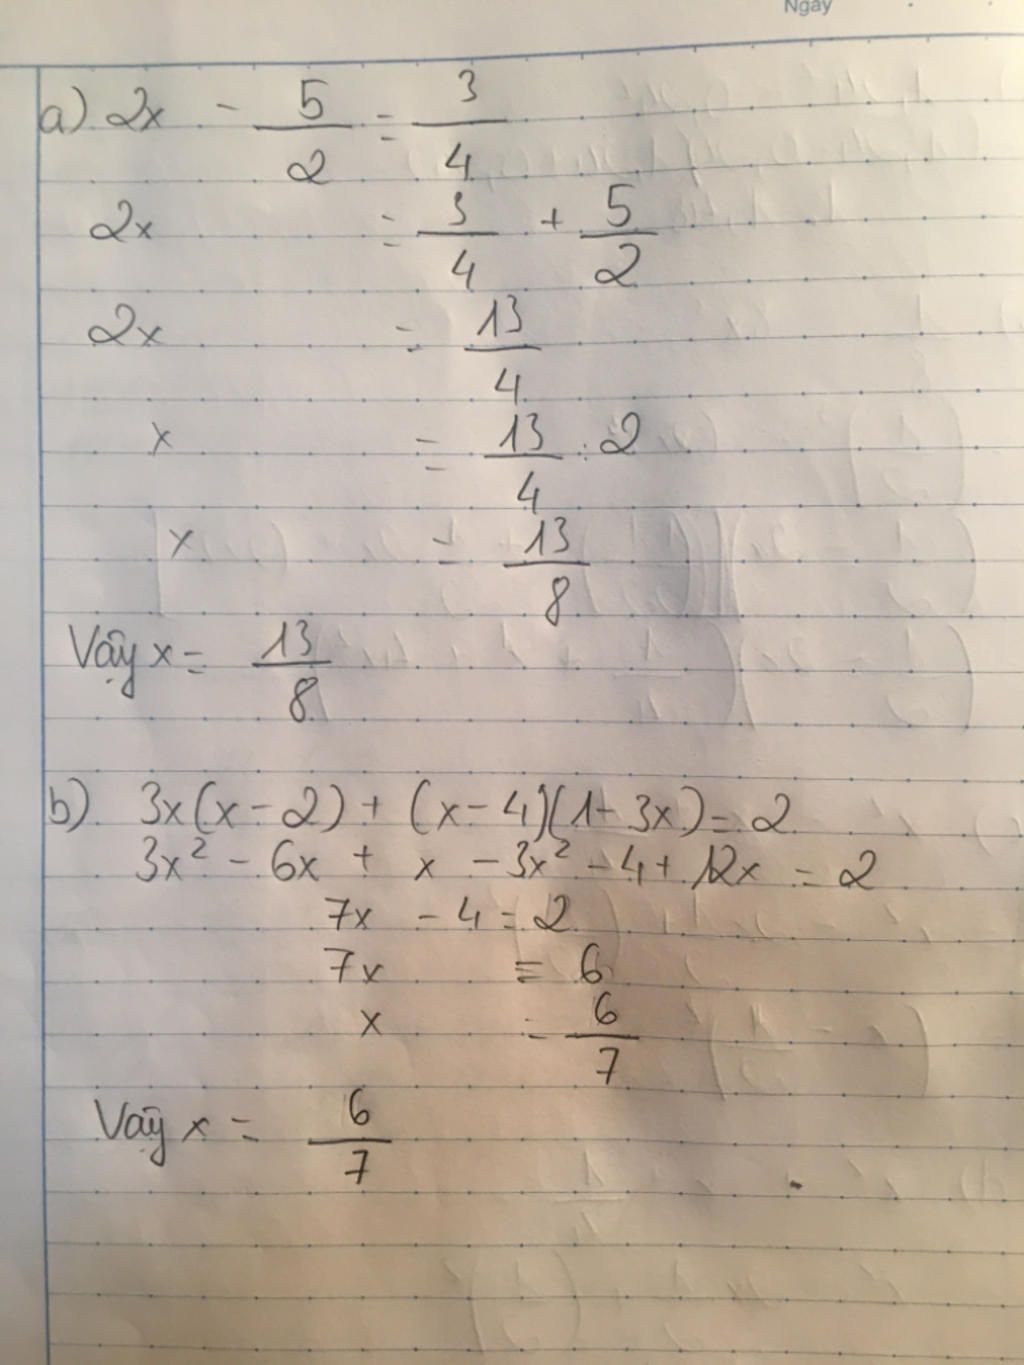 Ngày
a) 2x - 5/2 = 3/4
2x = 3/4 + 5/2
2x = 13/4
x = 13/4 : 2
x = 13/8
Vậy x = 13/8
b) 3x(x - 2) + (x - 4)(1 - 3x) = 2
3x² - 6x + x - 3x² - 4 + 12x = 2
7x - 4 = 2
7x = 6
x = 6/7
Vậy x = 6/7